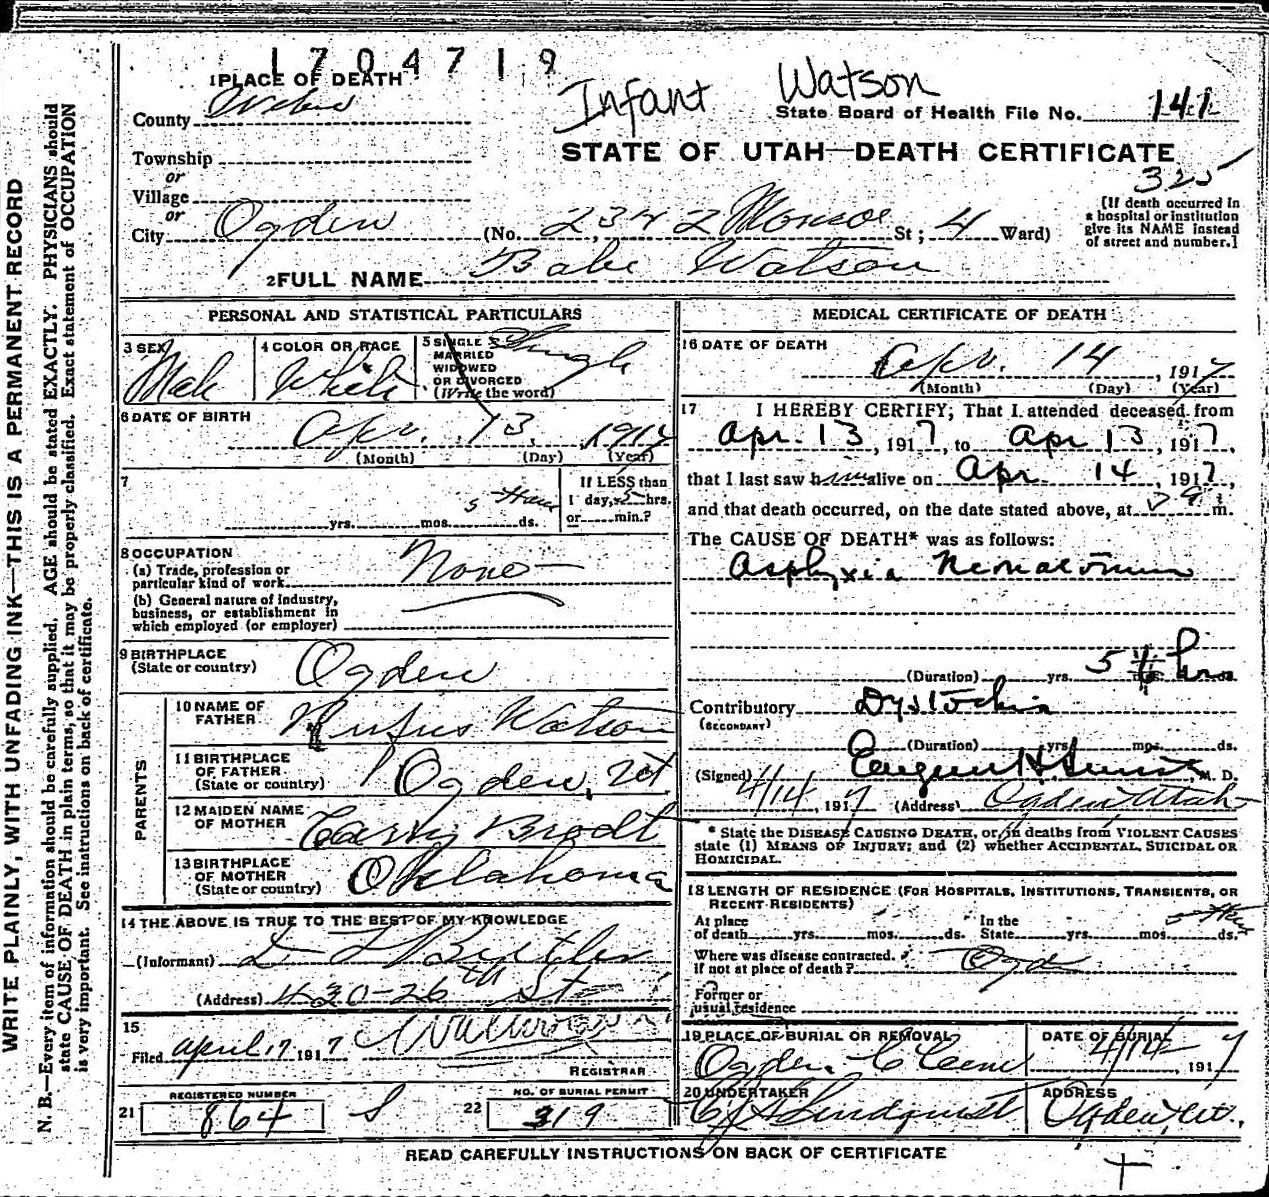 1704719
1 PLACE OF DEATH
Infant Watson
County Weber
State Board of Health File No. 141
Township
or
STATE OF UTAH—DEATH CERTIFICATE
325
Village
or
City Ogden (No. 2342 Monroe St; 4 Ward)
[If death occurred in a hospital or institution give its NAME instead of street and number.]
2 FULL NAME Babe Watson
PERSONAL AND STATISTICAL PARTICULARS
3 SEX Male
4 COLOR OR RACE White
5 SINGLE MARRIED WIDOWED OR DIVORCED (Write the word) Single
6 DATE OF BIRTH
Apr. 13, 1917
(Month) (Day) (Year)
7 yrs. mos. 5 Hours ds.
If LESS than 1 day, 5 hrs. or min.?
8 OCCUPATION
(a) Trade, profession or particular kind of work None
(b) General nature of industry, business, or establishment in which employed (or employer)
9 BIRTHPLACE (State or country) Ogden
PARENTS
10 NAME OF FATHER Rufus Watson
11 BIRTHPLACE OF FATHER (State or country) Ogden, Ut
12 MAIDEN NAME OF MOTHER Brodt
13 BIRTHPLACE OF MOTHER (State or country) Oklahoma
14 THE ABOVE IS TRUE TO THE BEST OF MY KNOWLEDGE
(Informant)
(Address) 430-26th St
15
Filed April 17 1917
REGISTRAR
REGISTERED NUMBER
21 864 S
NO. OF BURIAL PERMIT
22 319
MEDICAL CERTIFICATE OF DEATH
16 DATE OF DEATH
Apr. 14, 1917
(Month) (Day) (Year)
17 I HEREBY CERTIFY, That I attended deceased from
Apr. 13, 1917, to Apr 13, 1917,
that I last saw him alive on Apr 14, 1917,
and that death occurred, on the date stated above, at m.
The CAUSE OF DEATH* was as follows:
Asphyxia Neonatorum
(Duration) yrs. 5 hrs ds.
Contributory (SECONDARY) Dystochia
(Duration) yrs. mos. ds.
(Signed) M. D.
4/14, 1917 (Address) Ogden Utah
* State the DISEASE CAUSING DEATH, or, in deaths from VIOLENT CAUSES
state (1) MEANS OF INJURY; and (2) whether ACCIDENTAL, SUICIDAL OR
HOMICIDAL.
18 LENGTH OF RESIDENCE (FOR HOSPITALS, INSTITUTIONS, TRANSIENTS, OR
RECENT RESIDENTS)
At place of death yrs. mos. ds. In the State yrs. mos. 5 Hours ds.
Where was disease contracted, if not at place of death? Ogden
Former or usual residence
19 PLACE OF BURIAL OR REMOVAL
Ogden
DATE OF BURIAL
4/14 1917
20 UNDERTAKER
Lindquist
ADDRESS
Ogden, Ut.
READ CAREFULLY INSTRUCTIONS ON BACK OF CERTIFICATE
WRITE PLAINLY, WITH UNFADING INK—THIS IS A PERMANENT RECORD
N. B.—Every item of information should be carefully supplied. AGE should be stated EXACTLY. PHYSICIANS should
state CAUSE OF DEATH in plain terms, so that it may be properly classified. Exact statement of OCCUPATION
is very important. See instructions on back of certificate.